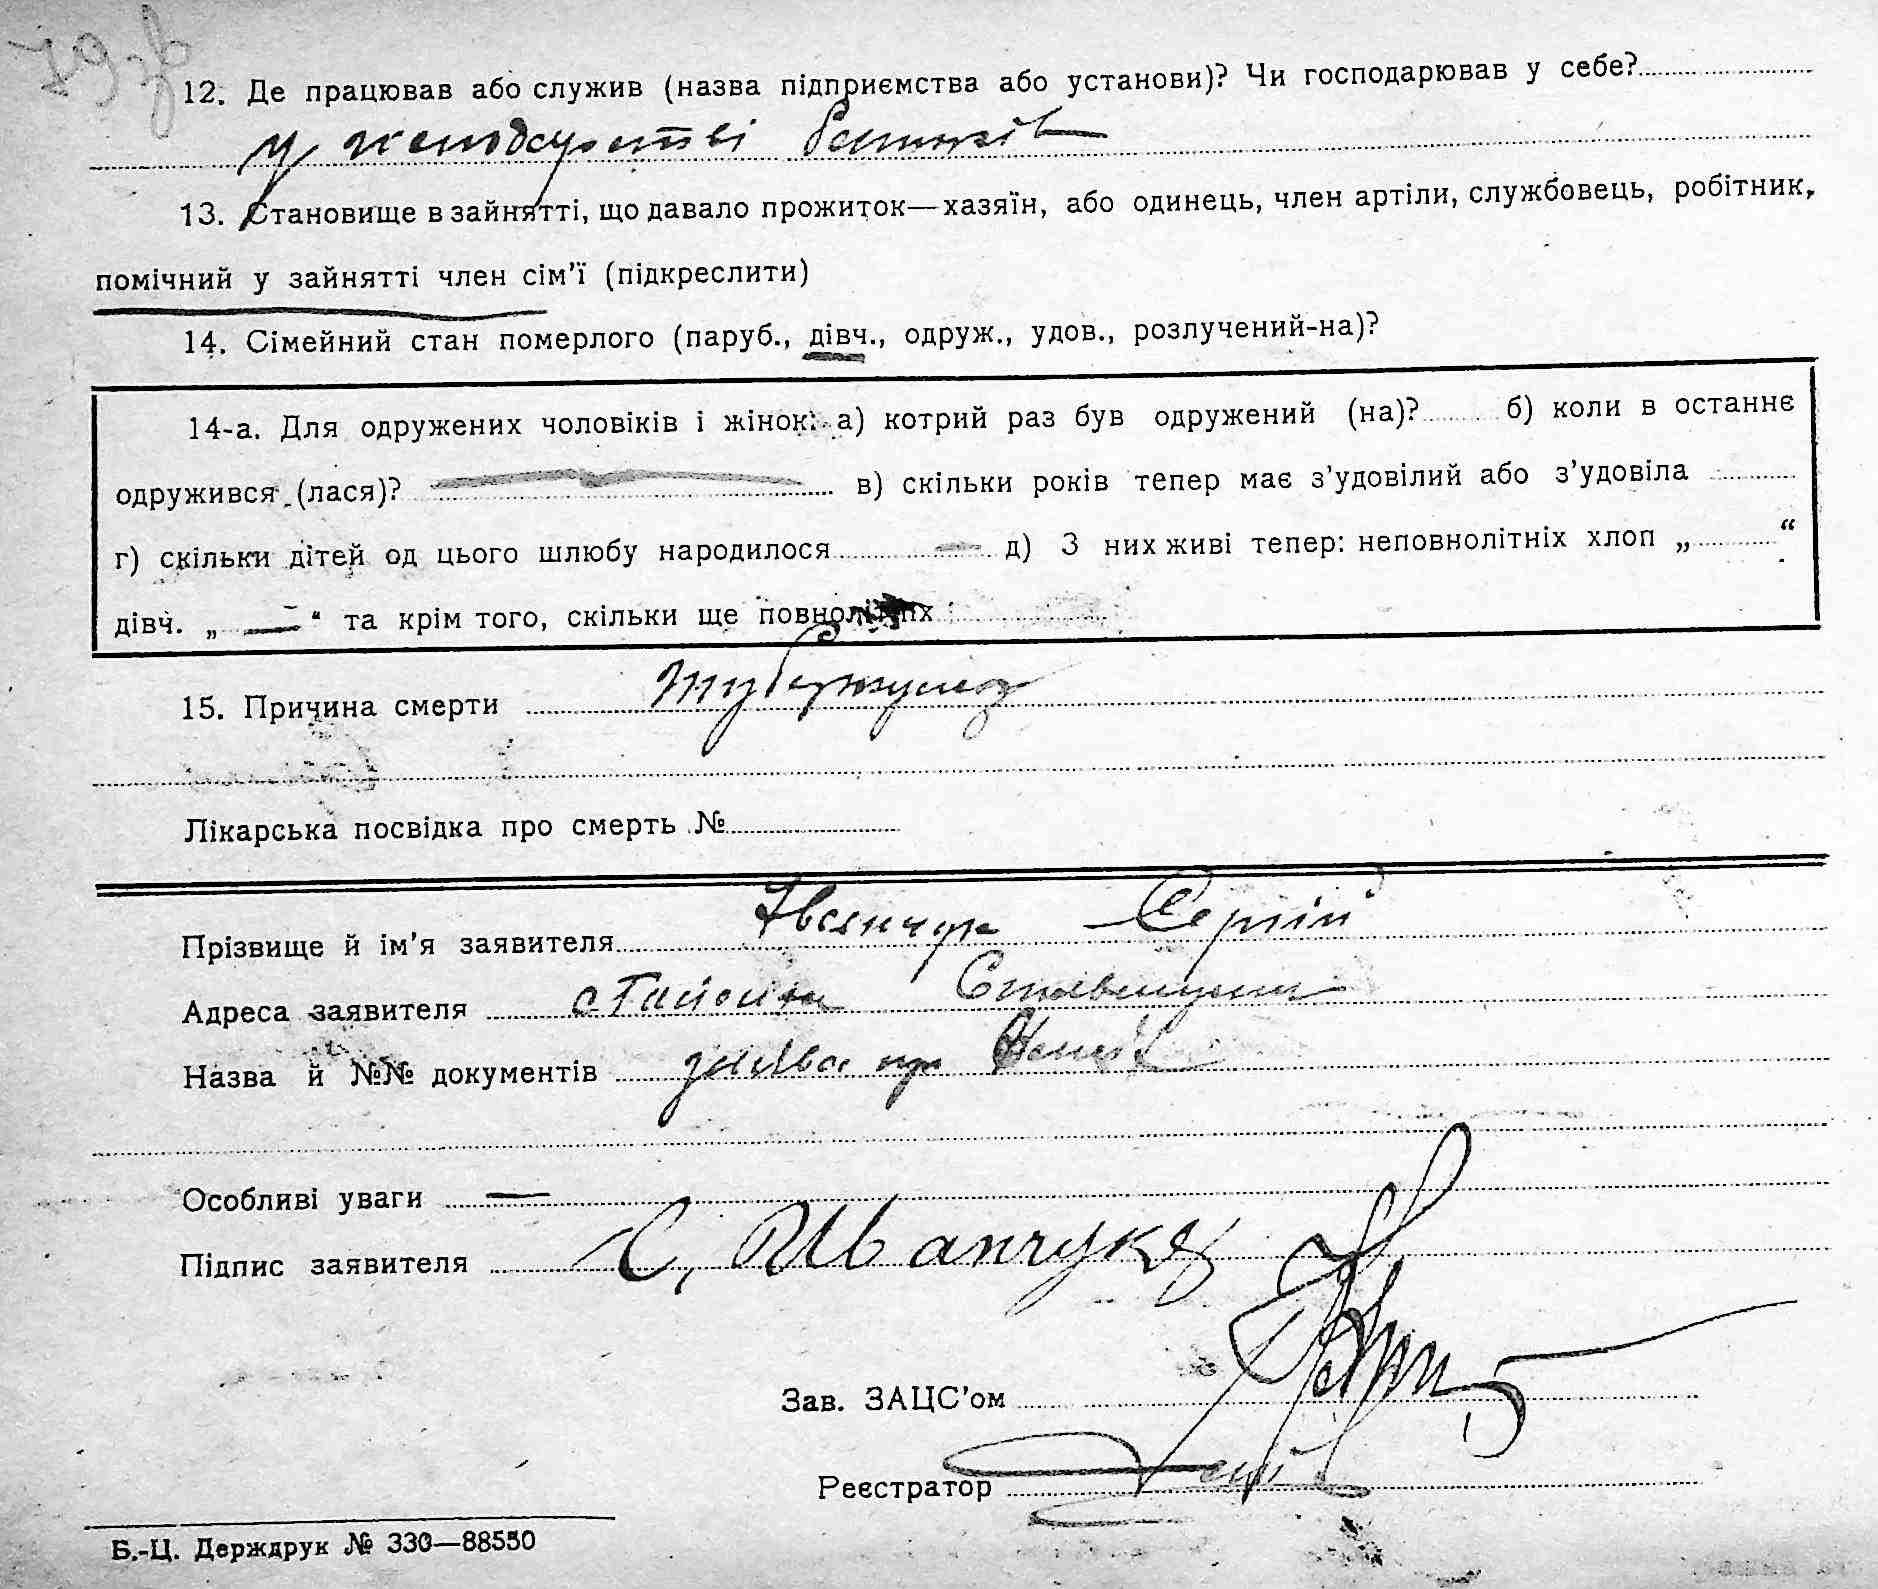 12. Де працював або служив (назва підприємства або установи)? Чи господарював у себе?
у батьків
13. Становище в зайнятті, що давало прожиток—хазяїн, або одинець, член артіли, службовець, робітник,
помічний у зайнятті член сім'ї (підкреслити)
14. Сімейний стан померлого (паруб., дівч., одруж., удов., розлучений-на)?
14-а. Для одружених чоловіків і жінок: а) котрий раз був одружений (на)? б) коли в останнє
одружився (лася)? в) скільки років тепер має з'удовілий або з'удовіла
г) скільки дітей од цього шлюбу народилося — д) З них живі тепер: неповнолітніх хлоп „ “
дівч. „ — “ та крім того, скільки ще повнолітніх
15. Причина смерти туберкульоз
Лікарська посвідка про смерть №
Прізвище й ім'я заявителя Іванчук Сергій
Адреса заявителя с Гайсин Ставищан
Назва й №№ документів заява про
Особливі уваги —
Підпис заявителя С, Иванчук
Зав. ЗАЦС'ом
Реєстратор
Б.-Ц. Держдрук № 330—88550